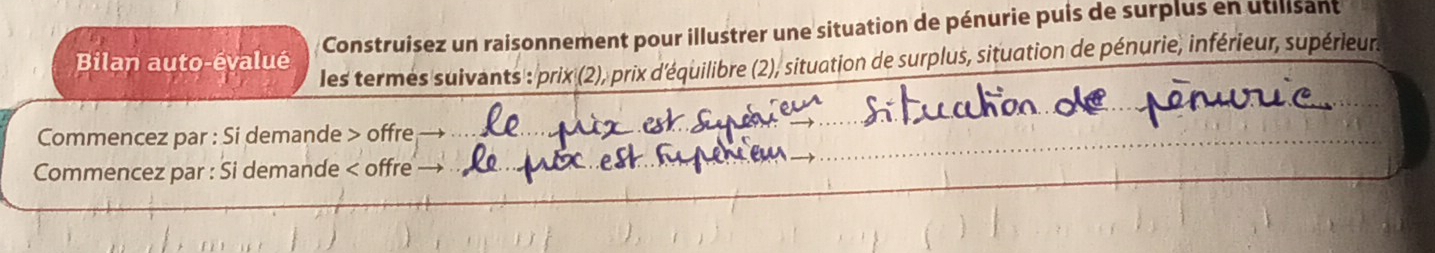 Bilan auto-évalué
Construisez un raisonnement pour illustrer une situation de pénurie puis de surplus en utilisant
les termes suivants : prix (2), prix d'équilibre (2), situation de surplus, situation de pénurie, inférieur, supérieur.
Commencez par : Si demande > offre → le prix est supérieur → situation de pénurie
Commencez par : Si demande < offre → le prix est supérieur →